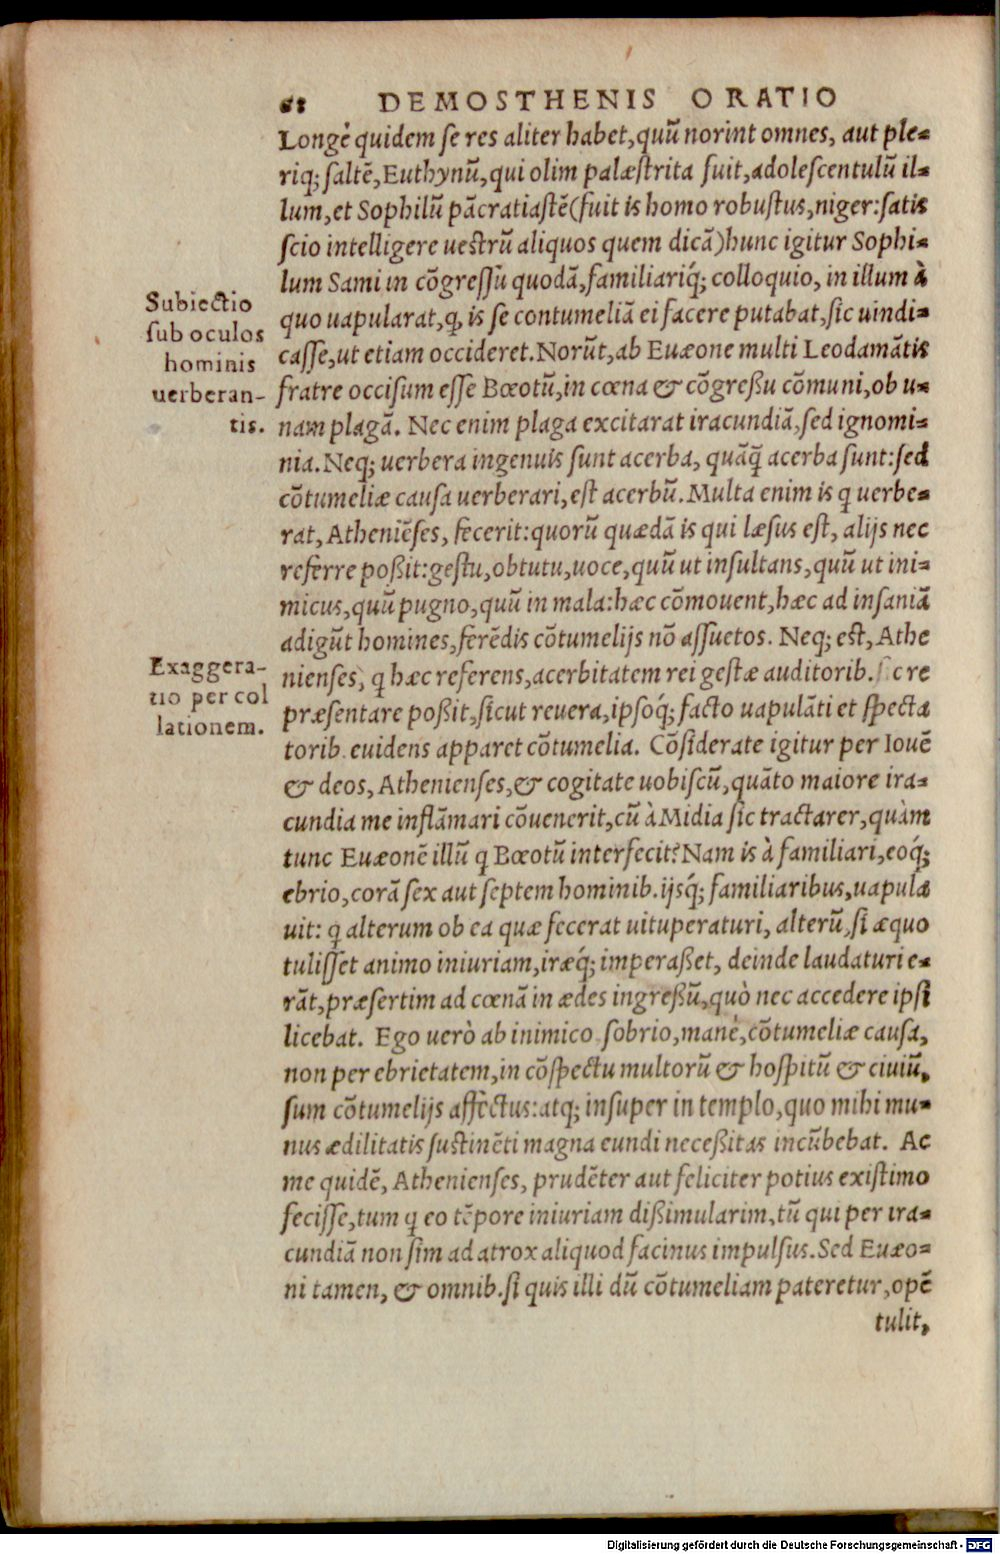 68 DEMOSTHENIS ORATIO
Longè quidem se res aliter habet, quũ norint omnes, aut ple-
riq; saltẽ, Euthynũ, qui olim palæstrita fuit, adolescentulũ il-
lum, et Sophilũ pãcratiastẽ (fuit is homo robustus, niger: satis
scio intelligere uestrũ aliquos quem dicã) hunc igitur Sophi-
lum Sami in cõgressu quodã, familiariq́; colloquio, in illum à
quo uapularat, q, is se contumeliã ei facere putabat, sic uindi-
casse, ut etiam occideret. Norũt, ab Euæone multi Leodamãtis
fratre occisum esse Bœotũ, in cœna & cõgreßu cõmuni, ob u-
nam plagã. Nec enim plaga excitarat iracundiã, sed ignomi-
nia. Neq; uerbera ingenuis sunt acerba, quãq̃ acerba sunt: sed
cõtumeliæ causa uerberari, est acerbũ. Multa enim is q uerbe-
rat, Atheniẽses, fecerit: quorũ quædã is qui læsus est, alijs nec
referre poßit: gestu, obtutu, uoce, quũ ut insultans, quũ ut ini-
micus, quũ pugno, quũ in mala: hæc cõmouent, hæc ad insaniã
adigũt homines, ferẽdis cõtumelijs nõ assuetos. Neq; est, Athe
nienses, q hæc referens, acerbitatem rei gestæ auditorib. sic re
præsentare poßit, sicut reuera, ipsoq́; facto uapulãti et specta
torib. euidens apparet cõtumelia. Cõsiderate igitur per Iouẽ
& deos, Athenienses, & cogitate uobiscũ, quãto maiore ira-
cundia me inflãmari cõuenerit, cũ à Midia sic tractarer, quàm
tunc Euæonẽ illũ q Bœotũ interfecit? Nam is à familiari, eoq́;
ebrio, corã sex aut septem hominib. ijsq́; familiaribus, uapula
uit: q alterum ob ea quæ fecerat uituperaturi, alterũ, si æquo
tulisset animo iniuriam, iræq́; imperaßet, deinde laudaturi e-
rãt, præsertim ad cœnã in ædes ingreßũ, quò nec accedere ipsi
licebat. Ego uerò ab inimico sobrio, manè, cõtumeliæ causa,
non per ebrietatem, in cõspectu multorũ & hospitũ & ciuiũ,
sum cõtumelijs affectus: atq; insuper in templo, quo mihi mu-
nus ædilitatis sustinẽti magna eundi neceßitas incũbebat. Ac
me quidẽ, Athenienses, prudẽter aut feliciter potius existimo
fecisse, tum q eo tẽpore iniuriam dißimularim, tũ qui per ira-
cundiã non sim ad atrox aliquod facinus impulsus. Sed Euæo-
ni tamen, & omnib. si quis illi dũ cõtumeliam pateretur, opẽ
tulit,
Subiectio
sub oculos
hominis
uerberan-
tis.
Exaggera-
tio per col
lationem.
Digitalisierung gefördert durch die Deutsche Forschungsgemeinschaft - DFG